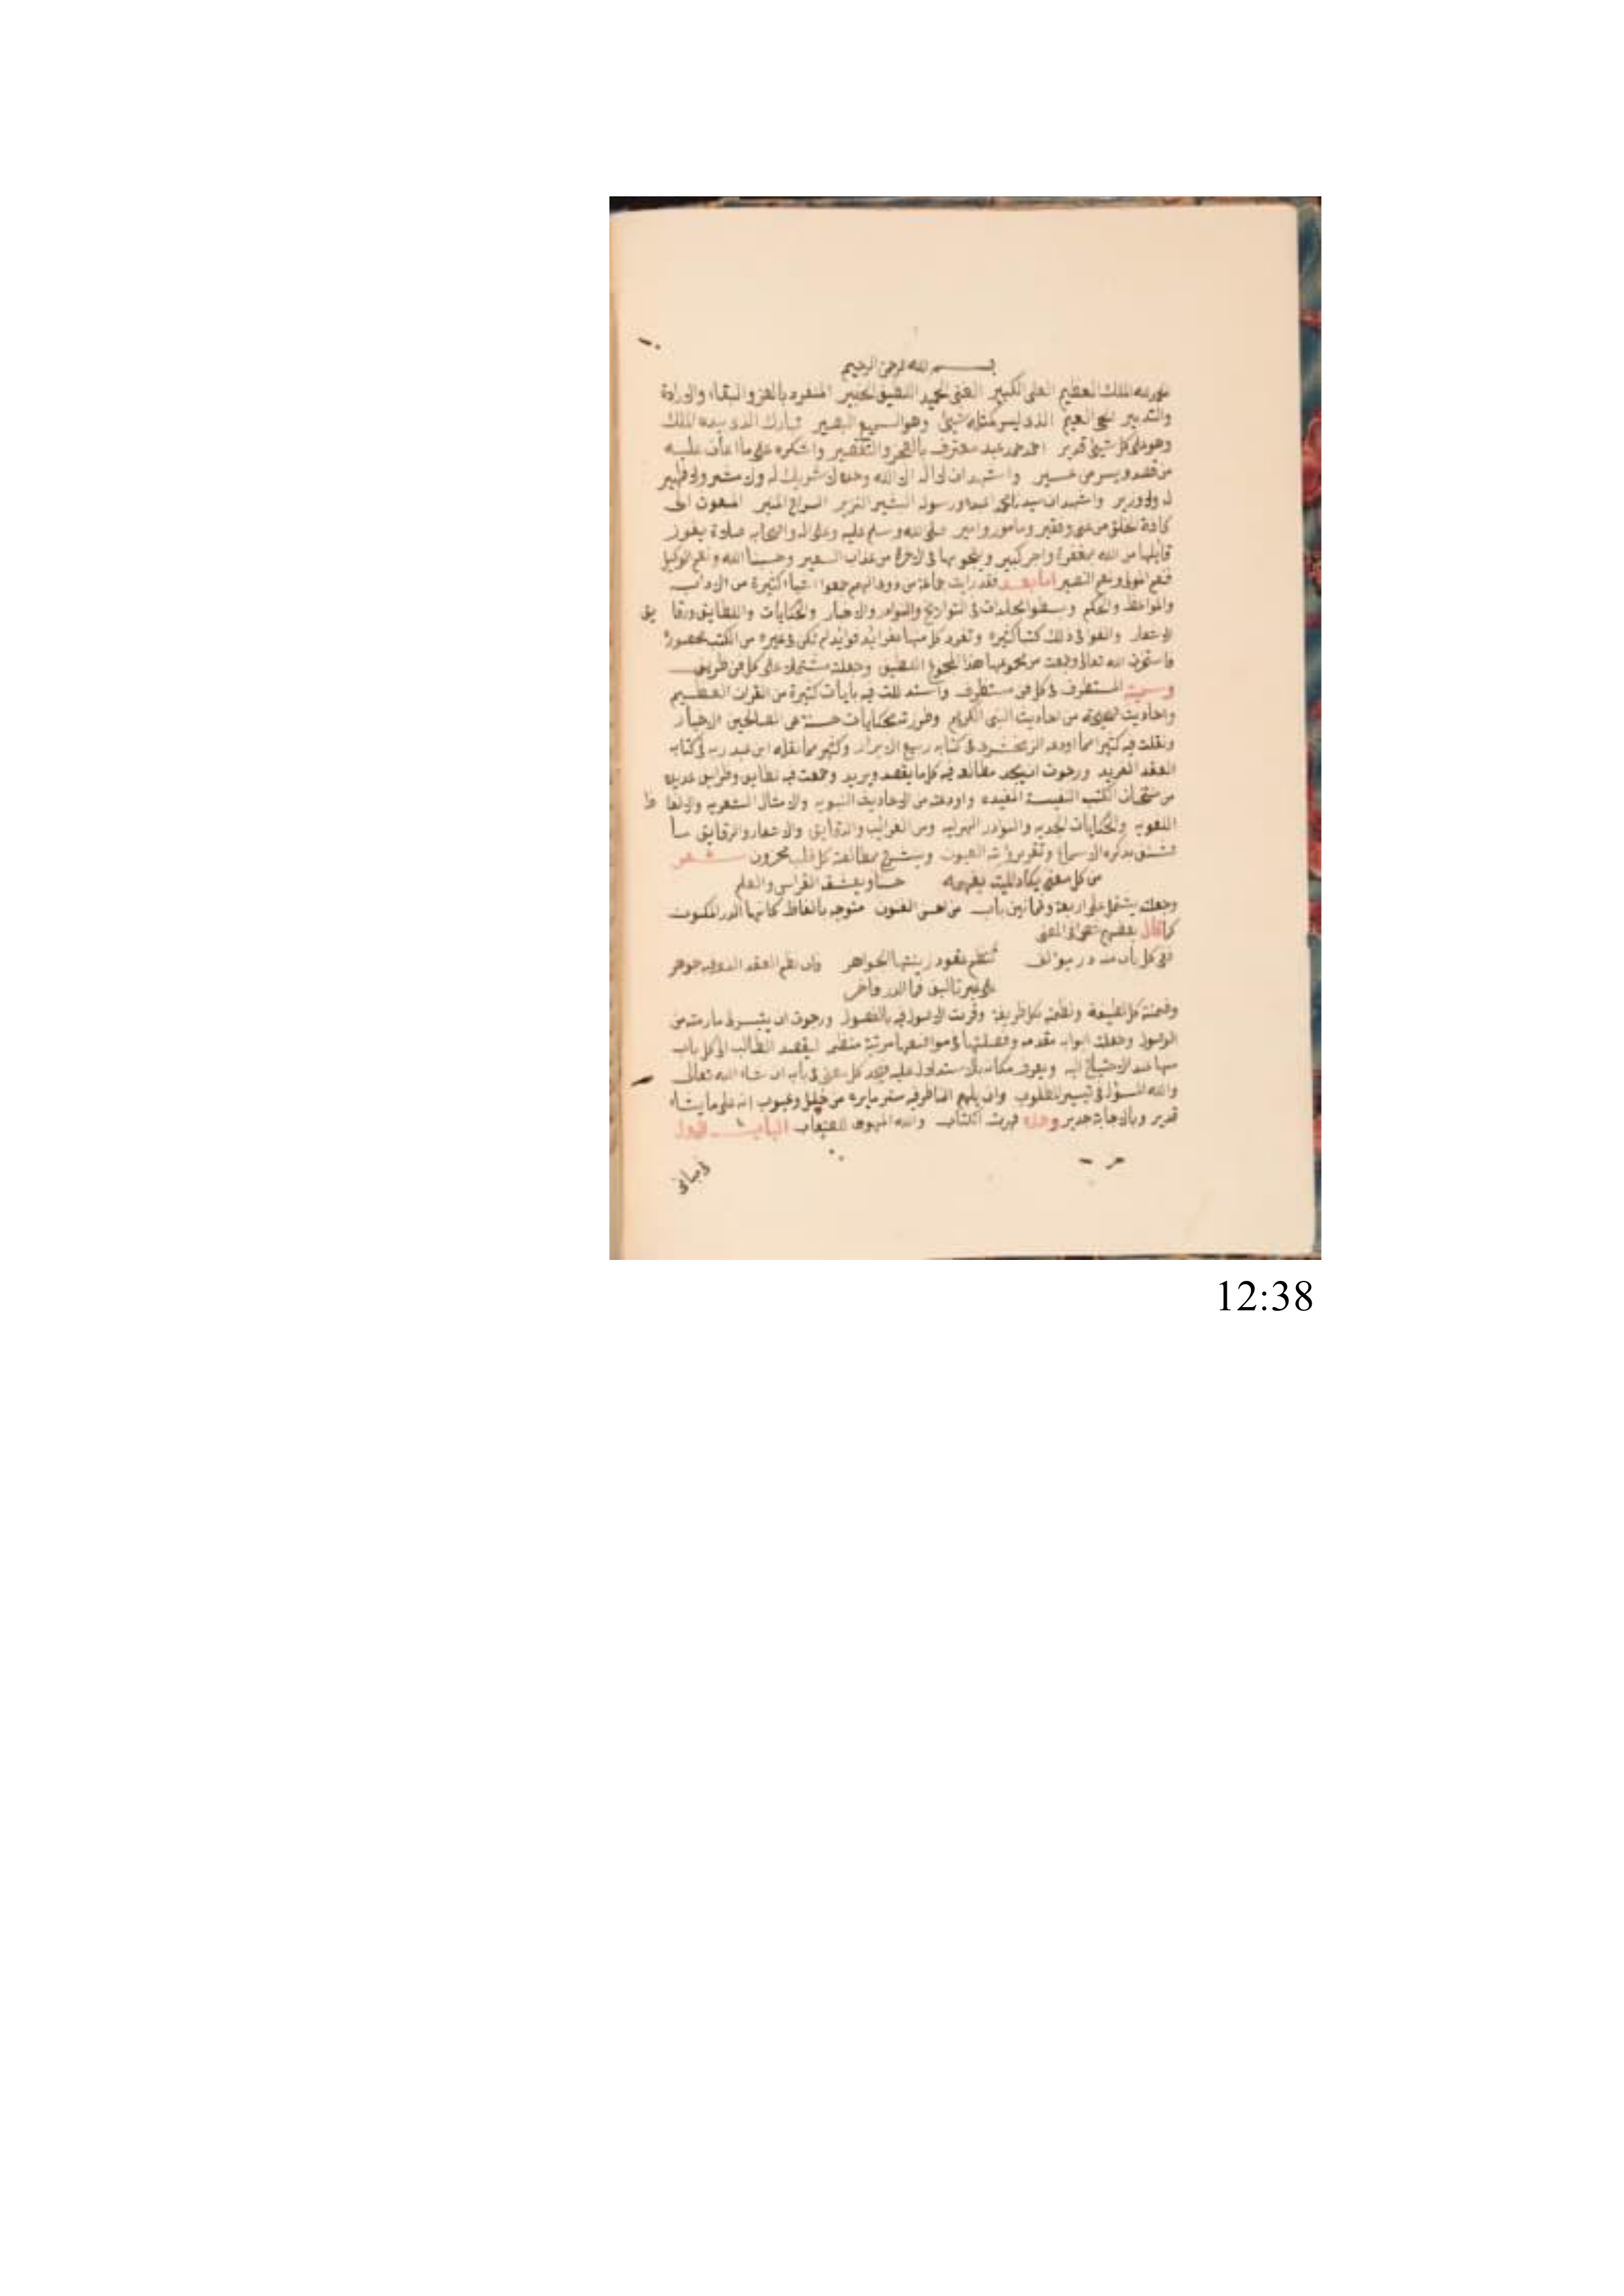 بسم الله الرحمن الرحيم
الحمد لله الملك العظيم العلي الكبير الغني الحميد اللطيف الخبير المنفرد بالعز والبقاء والارادة
والتدبير الحي العليم الذي ليس كمثله شيئ وهو السميع البصير تبارك الذي بيده الملك
وهو على كل شيئ قدير احمده حمد عبد معترف بالعجز والتقصير واشكره على ما اعان عليه
من قصد ويسر من عسير واشهد ان لا اله الا الله وحده لا شريك له ولا مشير ولا ظهير
له ولا وزير واشهد ان سيدنا محمد عبده ورسوله البشير النذير السراج المنير المبعوث الى
كافة الخلق من غني وفقير ومامور وامير صلى الله وسلم عليه وعلى اله واصحابه صلاة يفوز
قايلها من الله بمغفرة واجر كبير وينجو بها في الاخرة من عذاب السعير وحسبنا الله ونعم الوكيل
فنعم المولى ونعم النصير اما بعد فقد رايت جماعة من ذوي الهمم جمعوا اشياا كثيرة من الاداب
والمواعظ والحكم وبسطوا مجلدات في التواريخ والنوادر والاخبار والحكايات واللطايف ورقايق
الاشعار والفوا في ذلك كتبا كثيره وتفرد كل منها بفرائد فوائد لم تكن في غيره من الكتب محصورة
فاستخرت الله تعالى وجمعت من مجموعها هذا المجموع اللطيف وجعلته مشتملا على كل فن ظريف
وسميته المستطرف في كل فن مستظرف واستدللت فيه بايات كثيرة من القران العظيم
واحاديث صحيحة من احاديث النبي الكريم وطرزته بحكايات حسنة عن الصالحين الاخيار
ونقلت فيه كثيرا مما اودعه الزمخشري في كتابه ربيع الابرار وكثير مما نقله ابن عبد ربه في كتابه
العقد الفريد ورجوت ان يجد مطالعه فيه كل ما يقصد ويريد وجمعت فيه لطايف وظرايف عديده
من منتخبات الكتب النفيسة المفيده واودعته من الاحاديث النبويه والامثال الشعريه والالفاظ
اللغويه والحكايات الجديه والنوادر الهزليه ومن الغرايب والدقايق والاشعار والرقايق ما
تشنف بذكره الاسماع وتقر برؤيته العيون وينشرح بمطالعته كل قلب محزون شعر
من كل معنى يكاد الميت يفهمه حسنا ويعشقه القرطاس والقلم
وجعلته يشتمل على اربعة وثمانين باب من احسن الفنون متوجه بالفاظ كانها الدر المكنون
كما قال بعضهم شعرا في المعنى
ففي كل باب منه در مؤلف كنظم عقود زينتها الجواهر وان نظم العقد الذي فيه جوهر
على غير تاليف فما الدر فاخر
وضمنته كل لطيفة ونظمته بكل ظريفة وقرنت الاصول فيه بالفصول ورجوت ان يتيسر لي ما رمته من
الوصول وجعلت ابوابه مقدمه وفصلتها في مواضعها مرتبة منظمه ليقصد الطالب الى كل باب
منها عند الاحتياج اليه ويعرف مكانه بالاستدلال عليه فيجد كل معنى في بابه ان شاء الله تعالى
والله المسؤل في تيسير المطلوب وان يلهم الناظر فيه ستر ما يراه من خلل وعيوب انه على ما يشاء
قدير وبالاجابة جدير وهذه فهرست الكتاب والله المهون للصعاب الباب الاول
في مباني
12:38